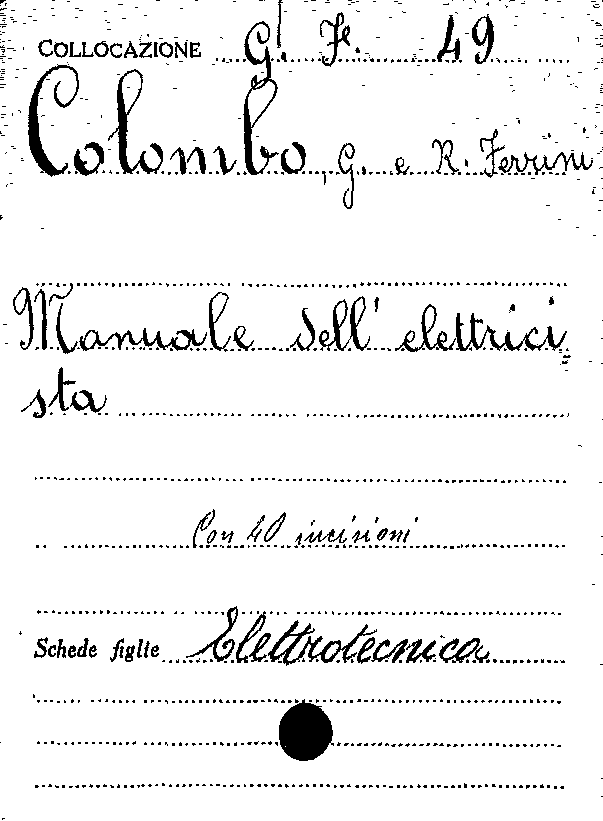 COLLOCAZIONE G. F. 49
Colombo, G. e R. Ferrini
Manuale dell' elettrici=
sta
Con 40 incisioni
Schede figlie Elettrotecnica